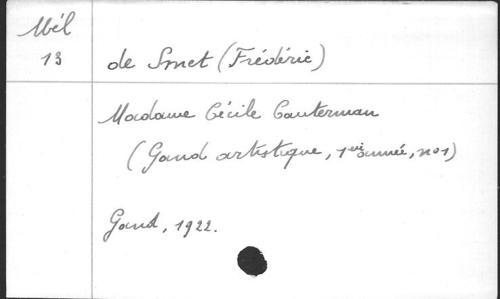 Mél
13
de Smet (Frédéric)
Madame Cécile Cauterman
(Gand artistique, 1re année, no 1)
Gand, 1922.